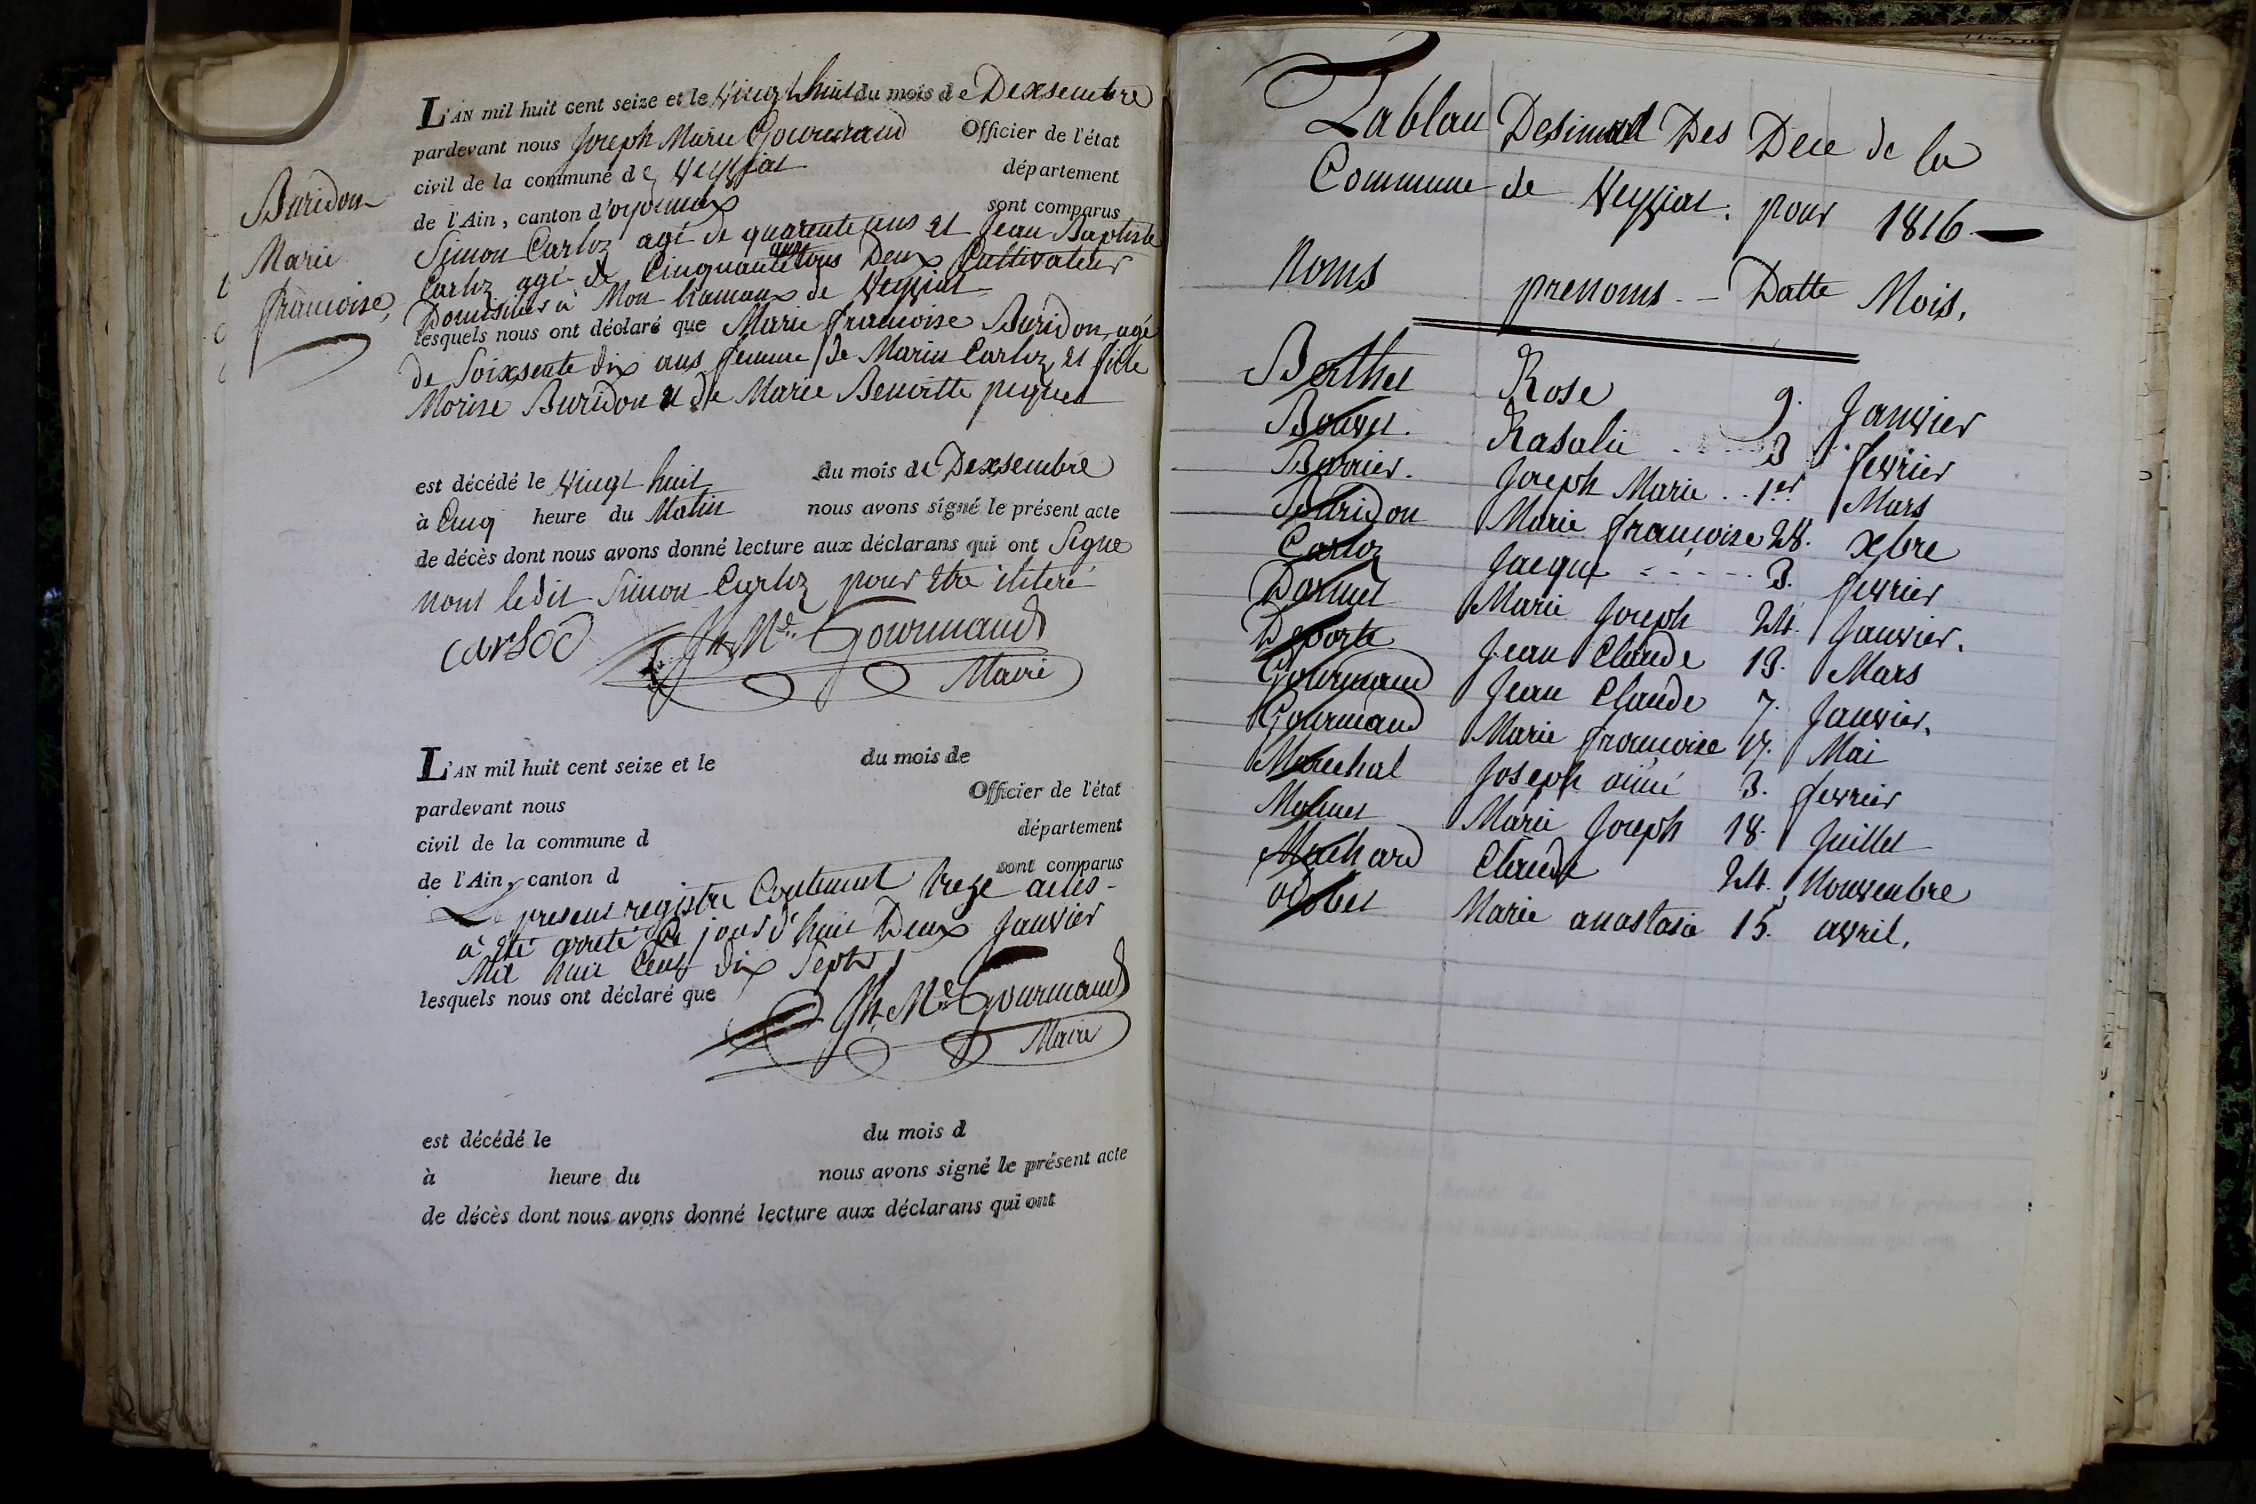 Buridon
Marie
francoise,
L'AN mil huit cent seize et le vingt huit du mois de Dexsembre
pardevant nous Joseph Marie Gourmand Officier de l'état
civil de la commune de Veyziat département
de l'Ain, canton d'oyonnax sont comparus
Simon Carloz agé de quarente ans et Jean Baptiste
Carloz agé de Cinquante ans tous Deux Cultivateur
Domisilies à Mon hamaux de Veyziat
lesquels nous ont déclaré que Marie francoise Buridon, agé
de Soixsente dix ans femme de Marin Carloz et fille
Morise Buridon et de Marie Benoitte piquet
est décédé le vingt huit du mois de Dexsembre
à Cinq heure du Matin nous avons signé le présent acte
de décès dont nous avons donné lecture aux déclarans qui ont Signe
nous ledit Simon Carloz pour etre iliteré
carloz Jh. Me. Gourmand
Maire
L'AN mil huit cent seize et le du mois de
pardevant nous Officier de l'état
civil de la commune d département
de l'Ain, canton d sont comparus
Le present registre Contenant treze actes
à été arreté Ce jour d'huit Deux Janvier
Mil huit Cent dix Septs
lesquels nous ont déclaré que Jh. Me. Gourmand
Maire
est décédé le du mois d
à heure du nous avons signé le présent acte
de décès dont nous avons donné lecture aux déclarans qui ont
Tablau Desimal Des Dece de la
Commune de Veyziat. pour 1816
Noms prenoms - Datte Mois.
Berthet Rose 9. Janvier
Bouvet. Rasalie 3 fevrier
Burrier. Joseph Marie 1er Mars
Buridon Marie françoise 28. xbre
Carloz Jacque 3. fevrier
Darmet Marie Joseph 24. Janvier.
Deporte Jean Claude 13. Mars
Gourmand Jean Claude 7. Janvier.
Gourmand Marie françoise 17. Mai
Marechal Joseph aimé 3. fevrier
Molinet Marie Joseph 18. Juillet
Machard Claude 24. Nouvembre
odobet Marie anastasie 15. avril.